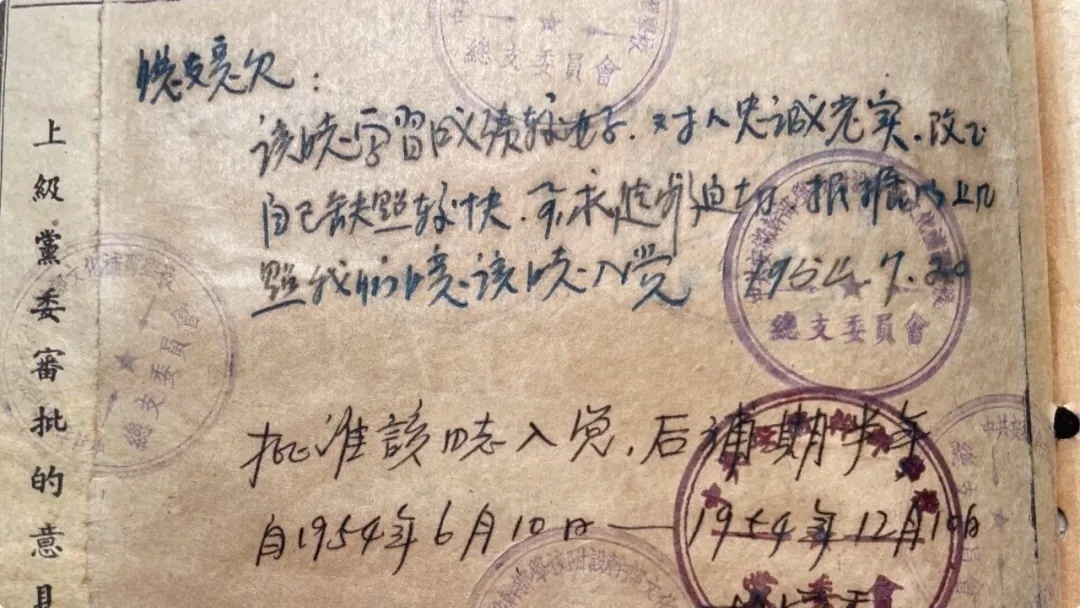 上級黨委審批的意見
總支意見：
该同志学習成績較好．对人忠诚老实．改正
自己缺點較快．要求進步迫切．根據以上几
點我們同意该同志入党 1954.7.20
批准該同志入党，后補期半年
自1954年6月10日——1954年12月10日
總支委員會
總支委員會
總支委員會
黨委會